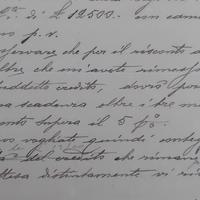 di £ 12500.- con cam
p. v.
servare che per il risconto a
ltre che m'avete rimess
uddetto credito, devo per
a scadenza oltre i tre m
nto supera il 5 p%
vogliate quindi
del credito che riman
ttesa distintamente vi ri